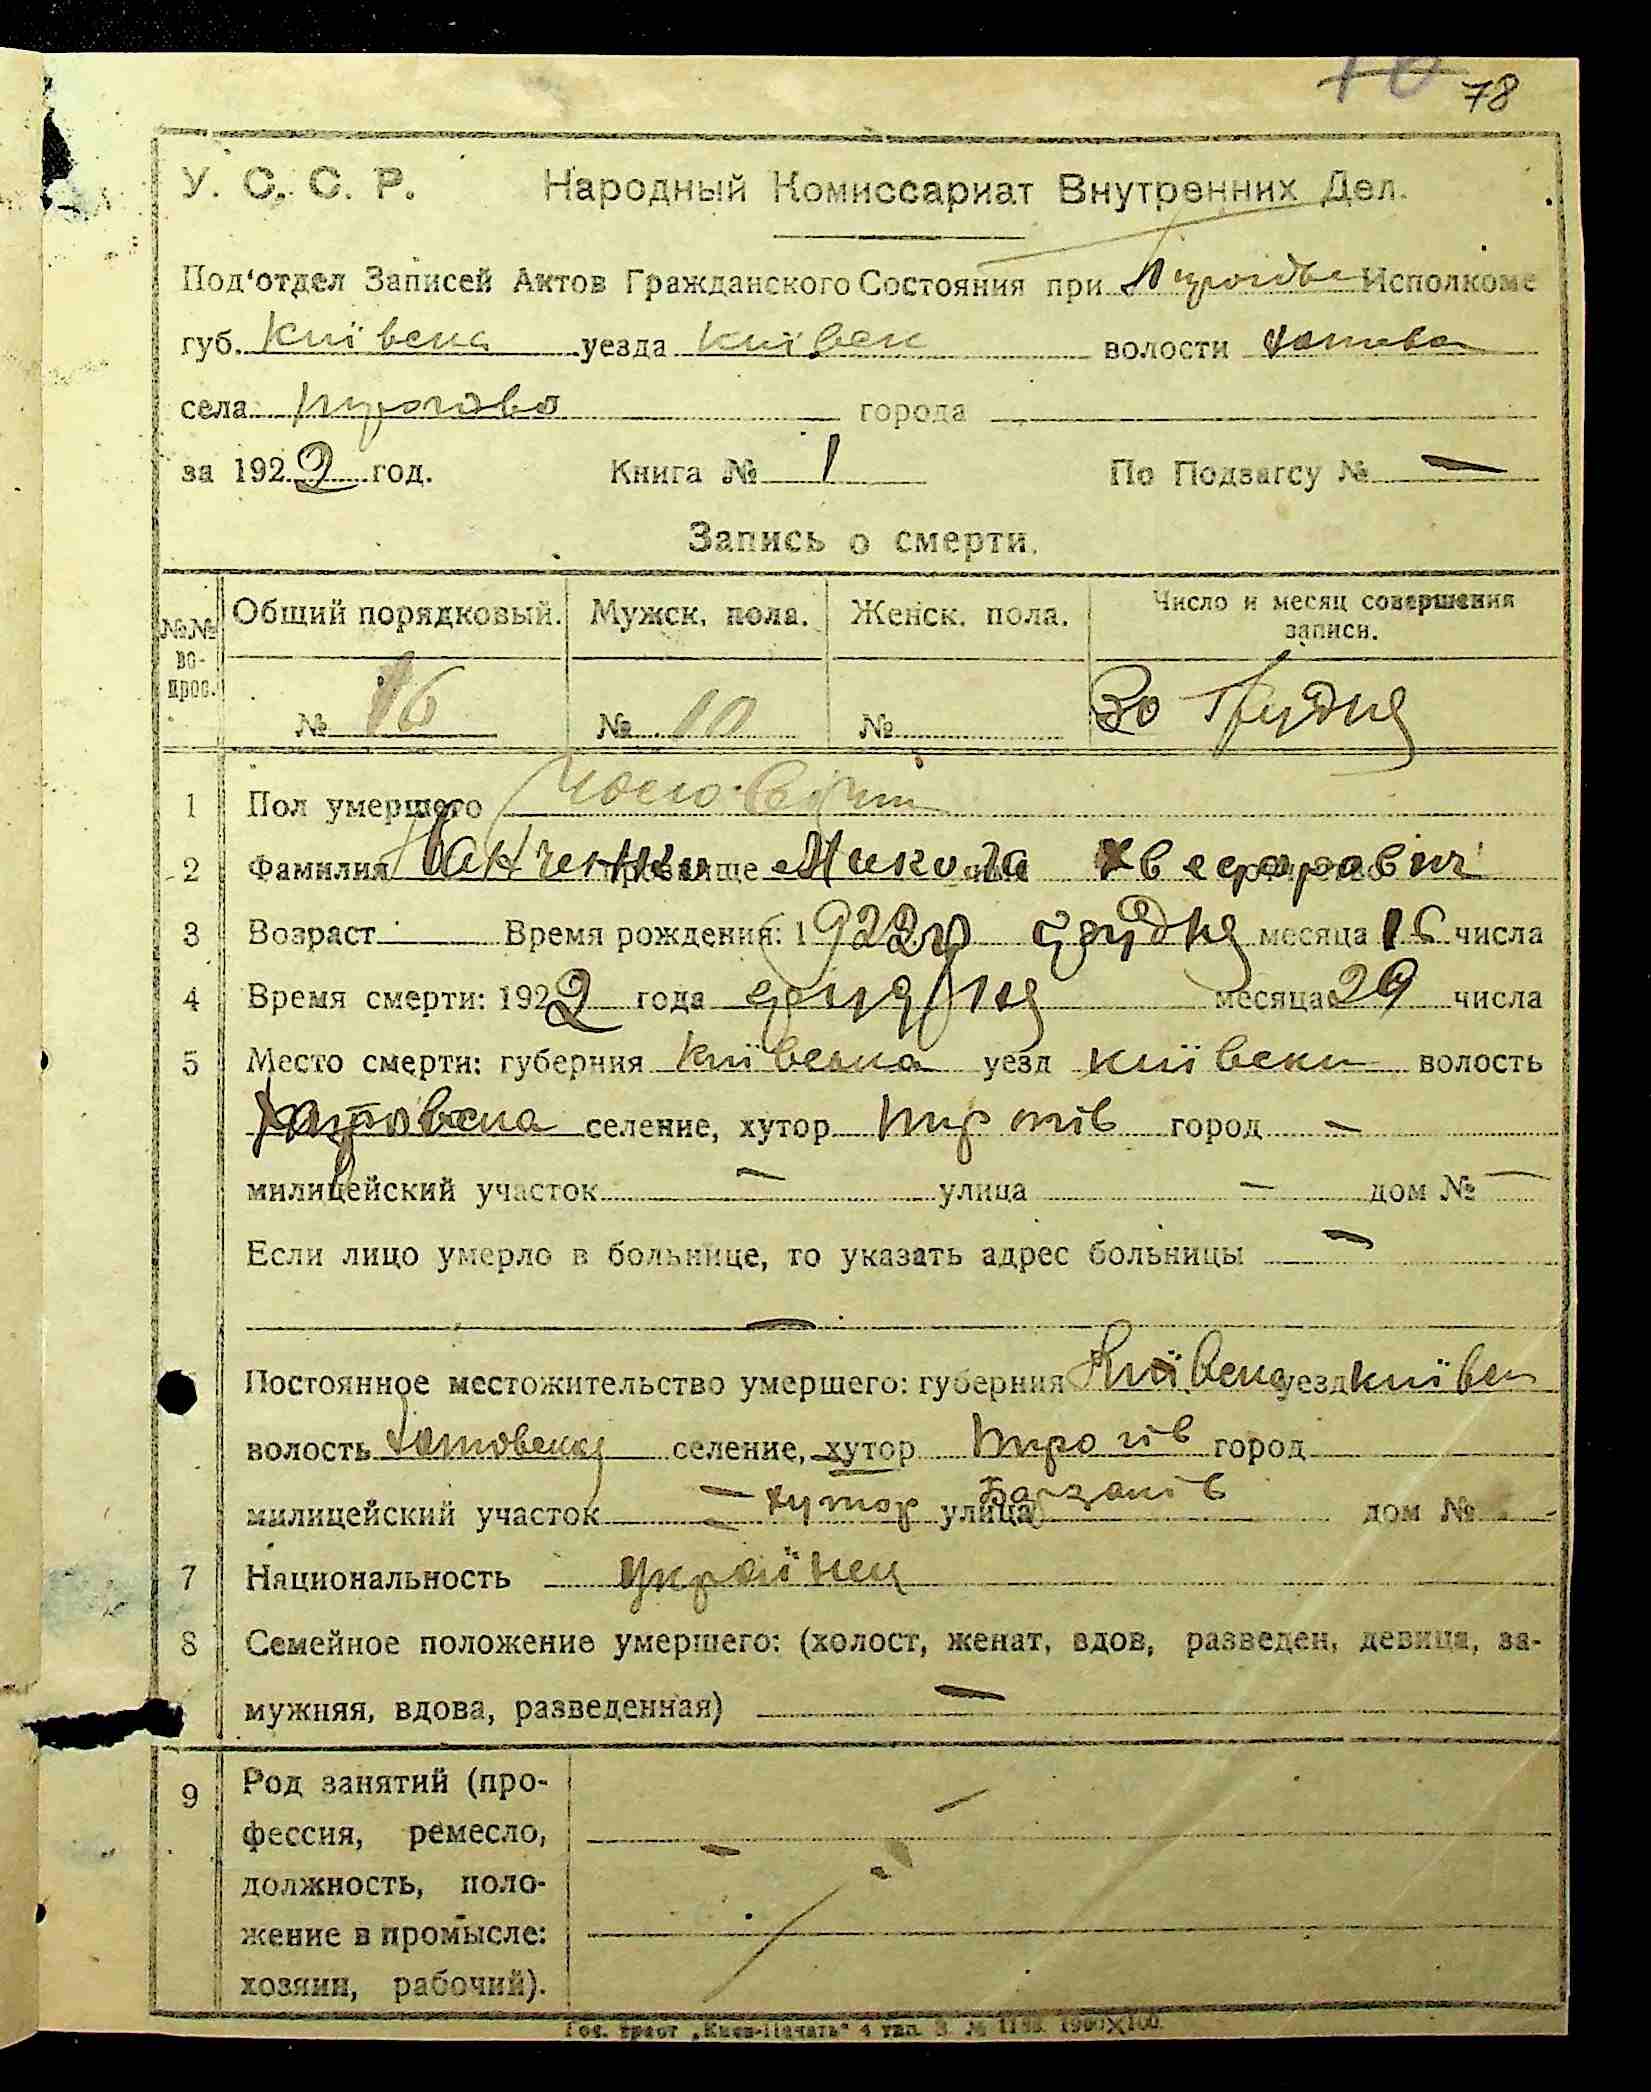 78
У. С. С. Р. Народный Комиссариат Внутренних Дел.
Под'отдел Записей Актов Гражданского Состояния при Исполкоме
губ. Київска уезда Київск волости
села города
за 1922 год. Книга № 1 По Подзагсу № —
Запись о смерти.
№№ вопрос. Общий порядковый. Мужск. пола. Женск. пола. Число и месяц совершения записи.
№ 16 № 10 № 30 Грудня
1 Пол умершего
2 Фамилия прозвище Микола Хведорович
3 Возраст Время рождения: 1922 р грудня месяца числа
4 Время смерти: 1922 года грудня месяца 29 числа
5 Место смерти: губерния Київська уезд київски волость
селение, хутор Пирогів город —
милицейский участок — улица — дом № —
Если лицо умерло в больнице, то указать адрес больницы —
—
Постоянное местожительство умершего: губерния Київска уезд київск
волость селение, хутор Пирогів город
милицейский участок — хутор улица дом № -
7 Национальность українец
8 Семейное положение умершего: (холост, женат, вдов, разведен, девица, за-
мужняя, вдова, разведенная) —
9 Род занятий (про-
фессия, ремесло,
должность, поло-
жение в промысле:
хозяин, рабочий).
Гос. трест „Киев-Печать" 4 тип. З. № 1100.